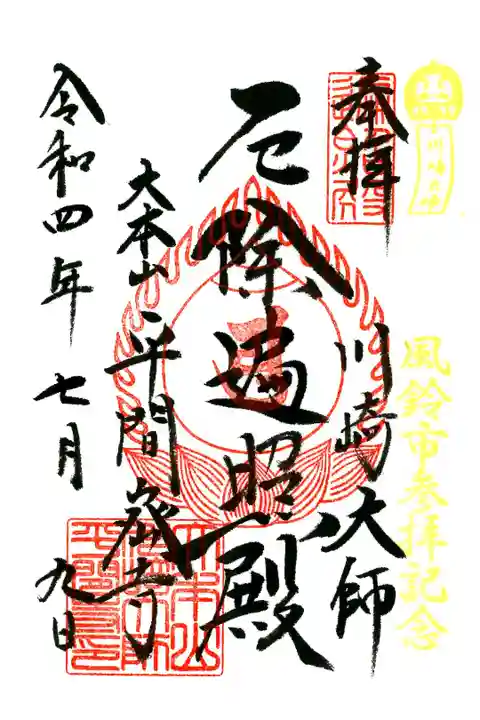 奉拝
川崎大師
風鈴市参拝記念
厄除遍照殿
大本山
平間寺
令和四年七月九日